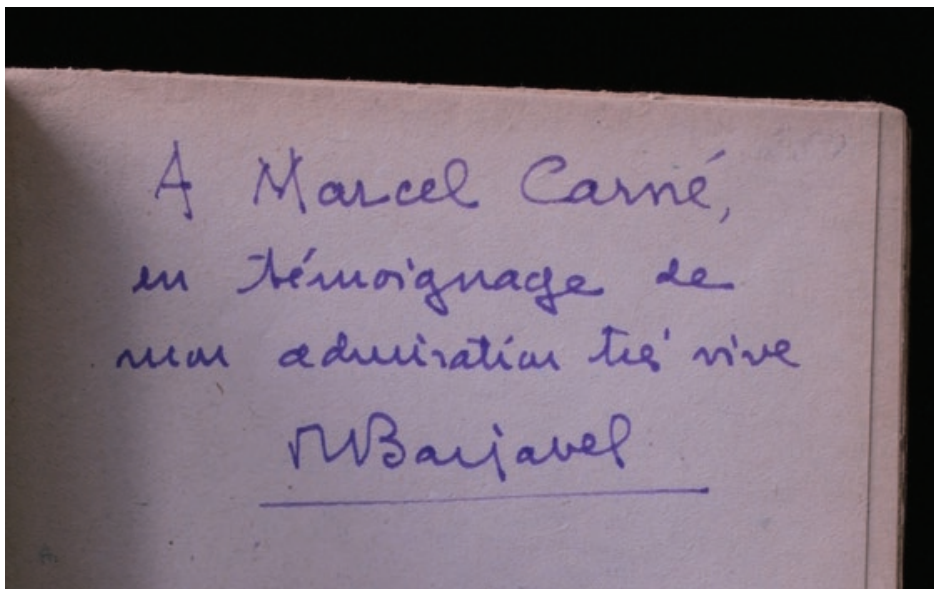 A Marcel Carné,
en témoignage de
mon admiration très vive
RBarjavel